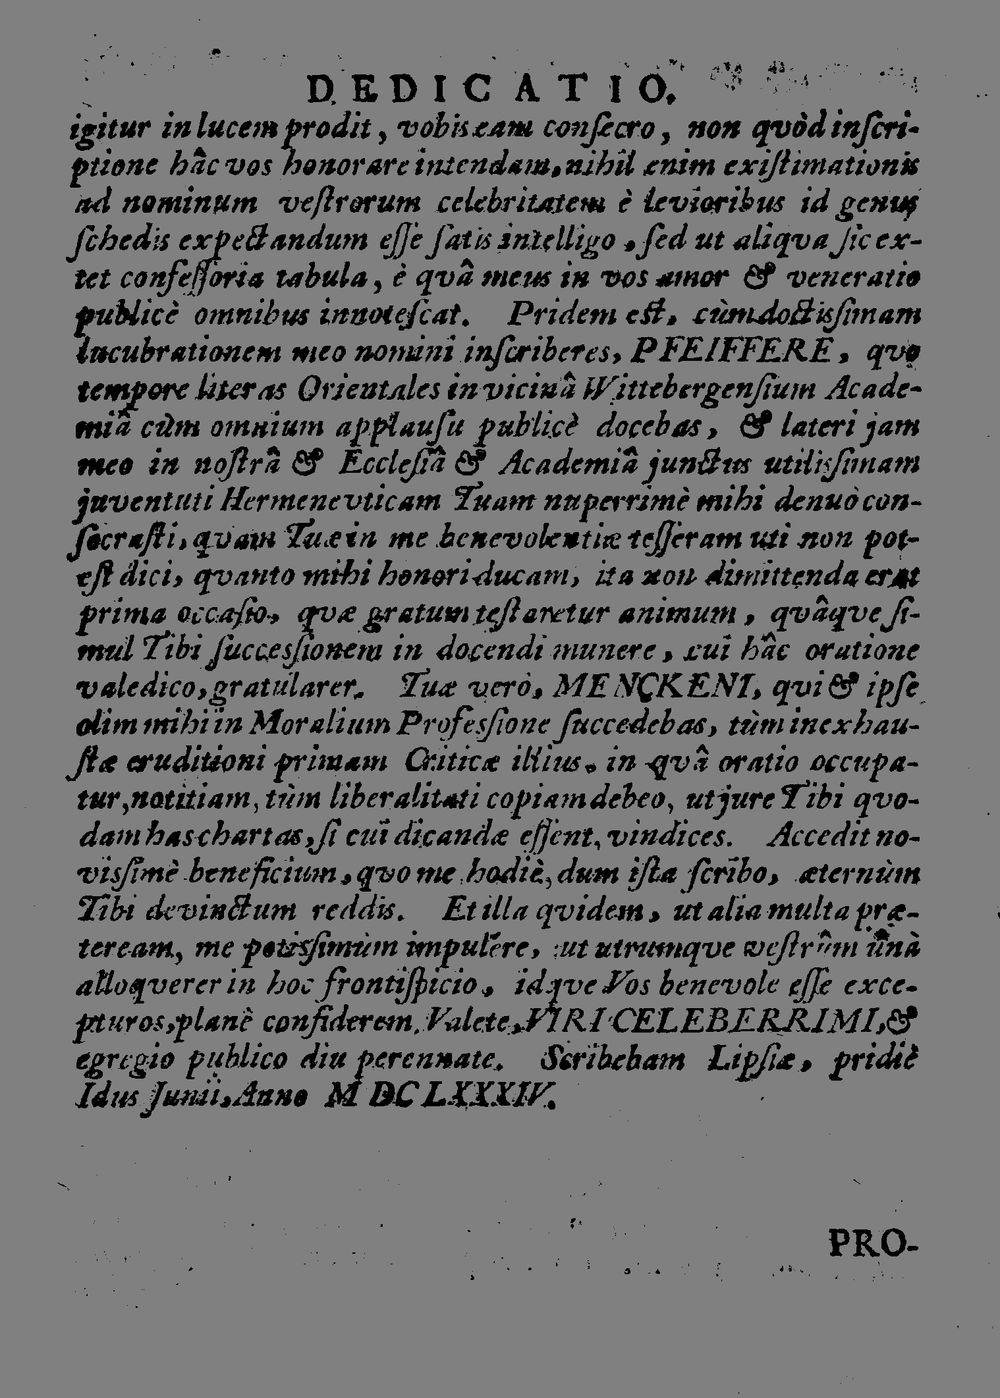 DEDICATIO.
igitur in lucem prodit, vobis eam conſecro, non qvòd inſcri-
ptione hâc vos honorare intendam, nihil enim exiſtimationis
ad nominum veſtrorum celebritatem è levioribus id genus
ſchedis expectandum eſſe ſatis intelligo, ſed ut aliqva ſic ex-
tet confeſſoria tabula, è qvâ meus in vos amor & veneratio
publicè omnibus innoteſcat. Pridem eſt, cùm doctisſimam
lucubrationem meo nomini inſcriberes, PFEIFFERE, qvo
tempore literas Orientales in vicinâ Wittebergenſium Acade-
miâ cùm omnium applauſu publicè docebas, & lateri jam
meo in noſtrâ & Eccleſiâ & Academiâ junctus utilisſimam
juventuti Hermenevticam Tuam nuperrimè mihi denuò con-
ſecraſti, qvam Tuæ in me benevolentiæ teſſeram uti non pot-
eſt dici, qvanto mihi honori ducam, ita non dimittenda erat
prima occaſio, qvæ gratum teſtaretur animum, qvâqve ſi-
mul Tibi ſuccesſionem in docendi munere, cui hâc oratione
valedico, gratularer. Tuæ verò, MENCKENI, qvi & ipſe
olim mihi in Moralium Profesſione ſuccedebas, tùm inexhau-
ſtæ eruditioni primam Criticæ illius, in qvâ oratio occupa-
tur, notitiam, tùm liberalitati copiam debeo, ut jure Tibi qvo-
dam has chartas, ſi cui dicandæ eſſent, vindices. Accedit no-
visſimè beneficium, qvo me hodiè, dum iſta ſcribo, æternùm
Tibi devinctum reddis. Et illa qvidem, ut alia multa præ-
teream, me potisſimùm impulêre, ut utrumqve veſtrûm unà
alloqverer in hoc frontiſpicio, idqve Vos benevole eſſe exce-
pturos, planè confiderem. Valete, VIRI CELEBERRIMI, &
egregio publico diu perennate. Scribebam Lipſiæ, pridiè
Idus Junii, Anno M DC LXXXIV.
PRO-